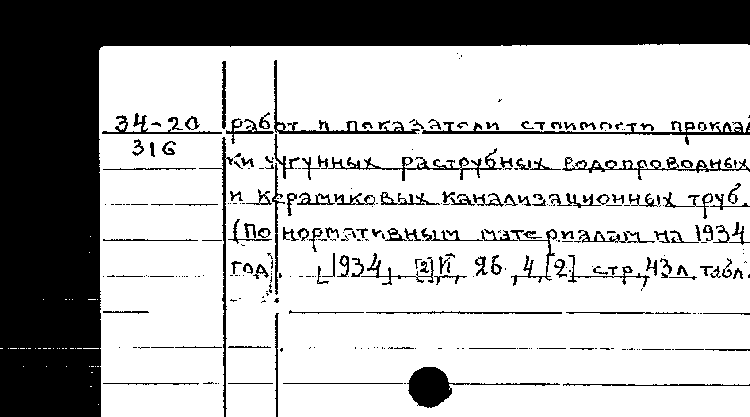 34-20 работ и показатели стоимости проклад
316
ки чугунных раструбных водопроводных
и керамиковых канализационных труб.
(По нормативным материалам на 1934
год). [1934]. [2], II, 26, 4, [2] стр., 43 л. табл.